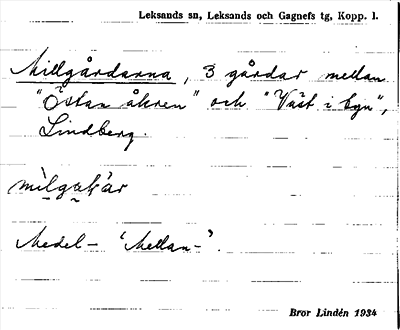 Leksands sn, Leksands och Gagnefs tg, Kopp. l.
Millgårdarna, 3 gårdar mellan
"Östan åkren" och "Väst i byn",
Lindberg.
Medel- 'Mellan-'.
Bror Lindén 1934